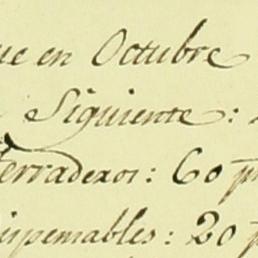 ue en Octubre
Siguiente:
erraderos: 60 p
ispensables: 20 p